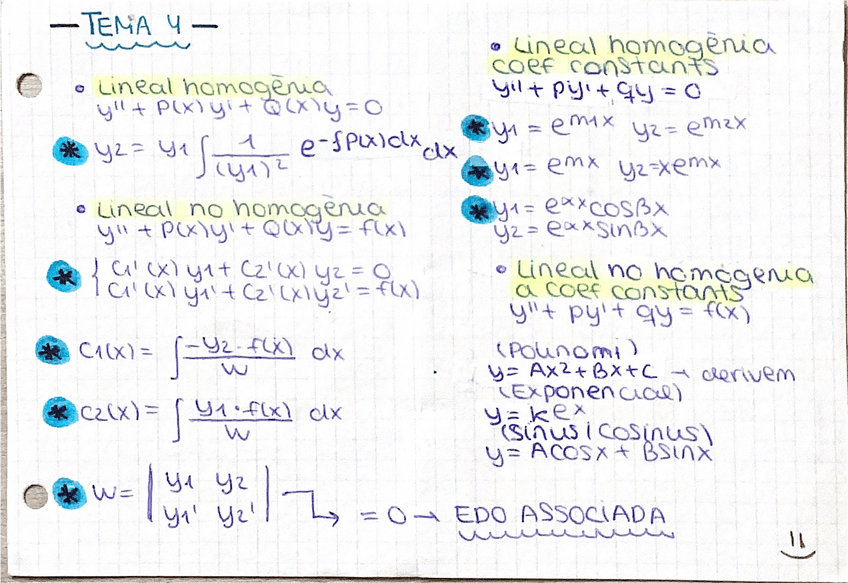 — TEMA 4 —
• Lineal homogènia
y'' + P(x) y' + Q(x) y = 0
* y2 = y1 ∫ 1/(y1)² e^-∫P(x)dx dx
• Lineal no homogènia
y'' + P(x) y' + Q(x) y = f(x)
* { C1'(x) y1 + C2'(x) y2 = 0
C1'(x) y1' + C2'(x) y2' = f(x)
* C1(x) = ∫ -y2 · f(x)/W dx
* C2(x) = ∫ y1 · f(x)/W dx
* W = | y1 y2 |
| y1' y2' | → = 0 → EDO ASSOCIADA
• Lineal homogènia
coef constants
y'' + py' + qy = 0
* y1 = e^m1x y2 = e^m2x
* y1 = e^mx y2 = xe^mx
* y1 = e^αx cosβx
y2 = e^αx sinβx
• Lineal no homogenia
a coef constants
y'' + py' + qy = f(x)
(Polinomi)
y = Ax² + Bx + C → derivem
(Exponencial)
y = ke^x
(Sinus i cosinus)
y = Acosx + Bsinx
11